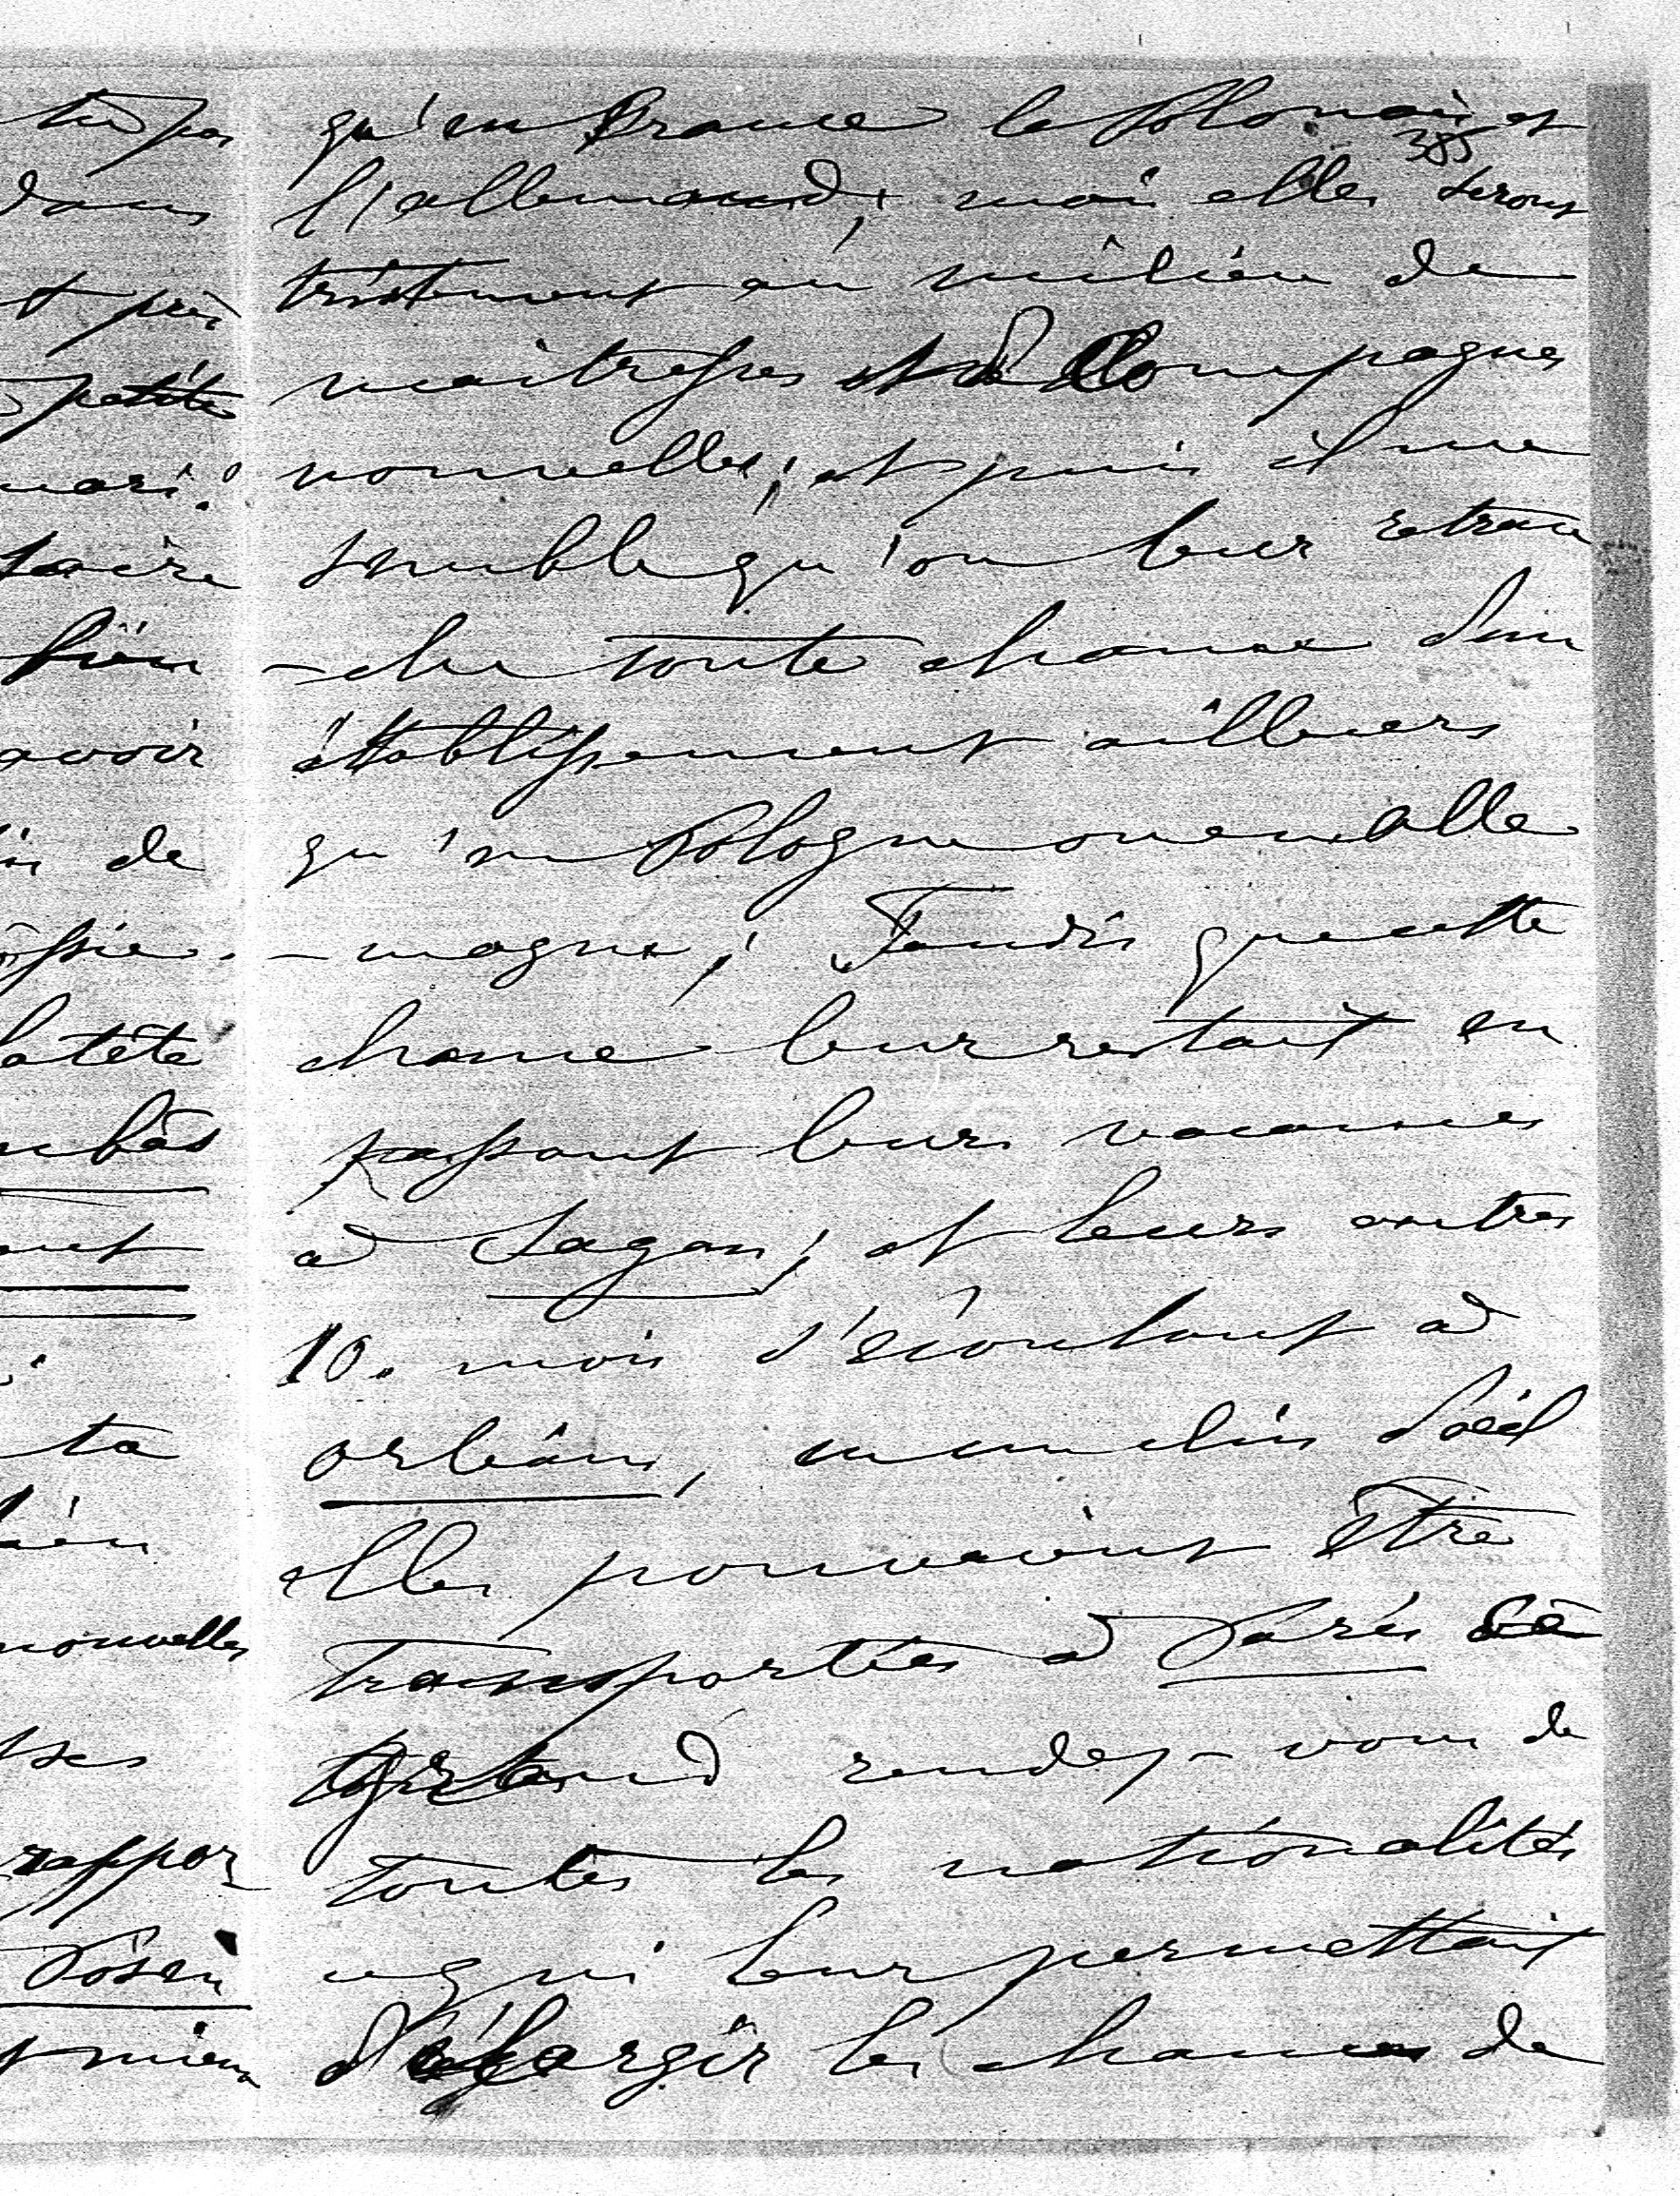 qu'en France le Polonais et
385
l'allemand; mais elles seront
tristement au milieu de
maitresses et de Compagnes
nouvelles; et puis il me
semble qu'on leur retran
-che toute chance d'un
établissement ailleurs
qu'en Pologne ou en alle
-magne; Tandis que cette
chance leur restait en
passant leurs vacances
à Sagan; et leurs autres
10. mois s'écoulant à
orléans, en un clin d'oeil
elles pouvaient être
transportées à Paris ce
grand rendez-vous de
toutes les nationalités
ce qui leur permettait
d'élargir les chances de
pas
dans
et près
petite
mari!
taire
bien
avoir
de
la tête
bas
ta
nouvelles
ses
rappor
Posen
mieux